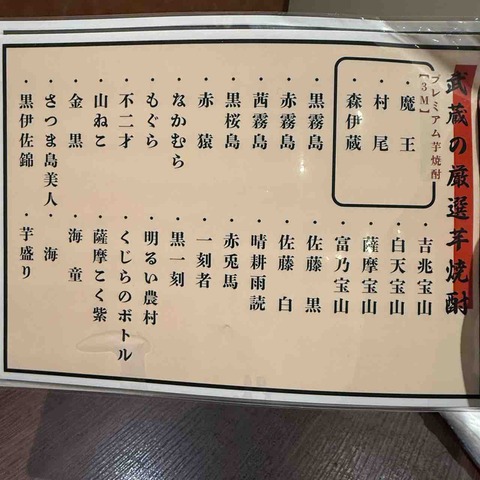 武蔵の厳選芋焼酎
プレミアム芋焼酎
【3M】
・魔王
・村尾
・森伊蔵
・黒霧島
・赤霧島
・茜霧島
・黒桜島
・赤猿
・なかむら
・もぐら
・不二才
・山ねこ
・金黒
・さつま島美人
・黒伊佐錦
・吉兆宝山
・白天宝山
・薩摩宝山
・富乃宝山
・佐藤 黒
・佐藤 白
・晴耕雨読
・赤兎馬
・一刻者
・黒一刻
・明るい農村
・くじらのボトル
・薩摩こく紫
・海童
・海
・芋盛り